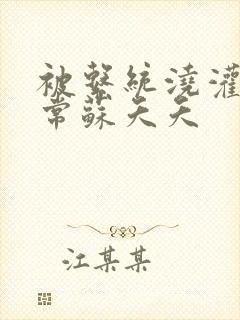 被繫統澆灌
常蘇天天
江某某